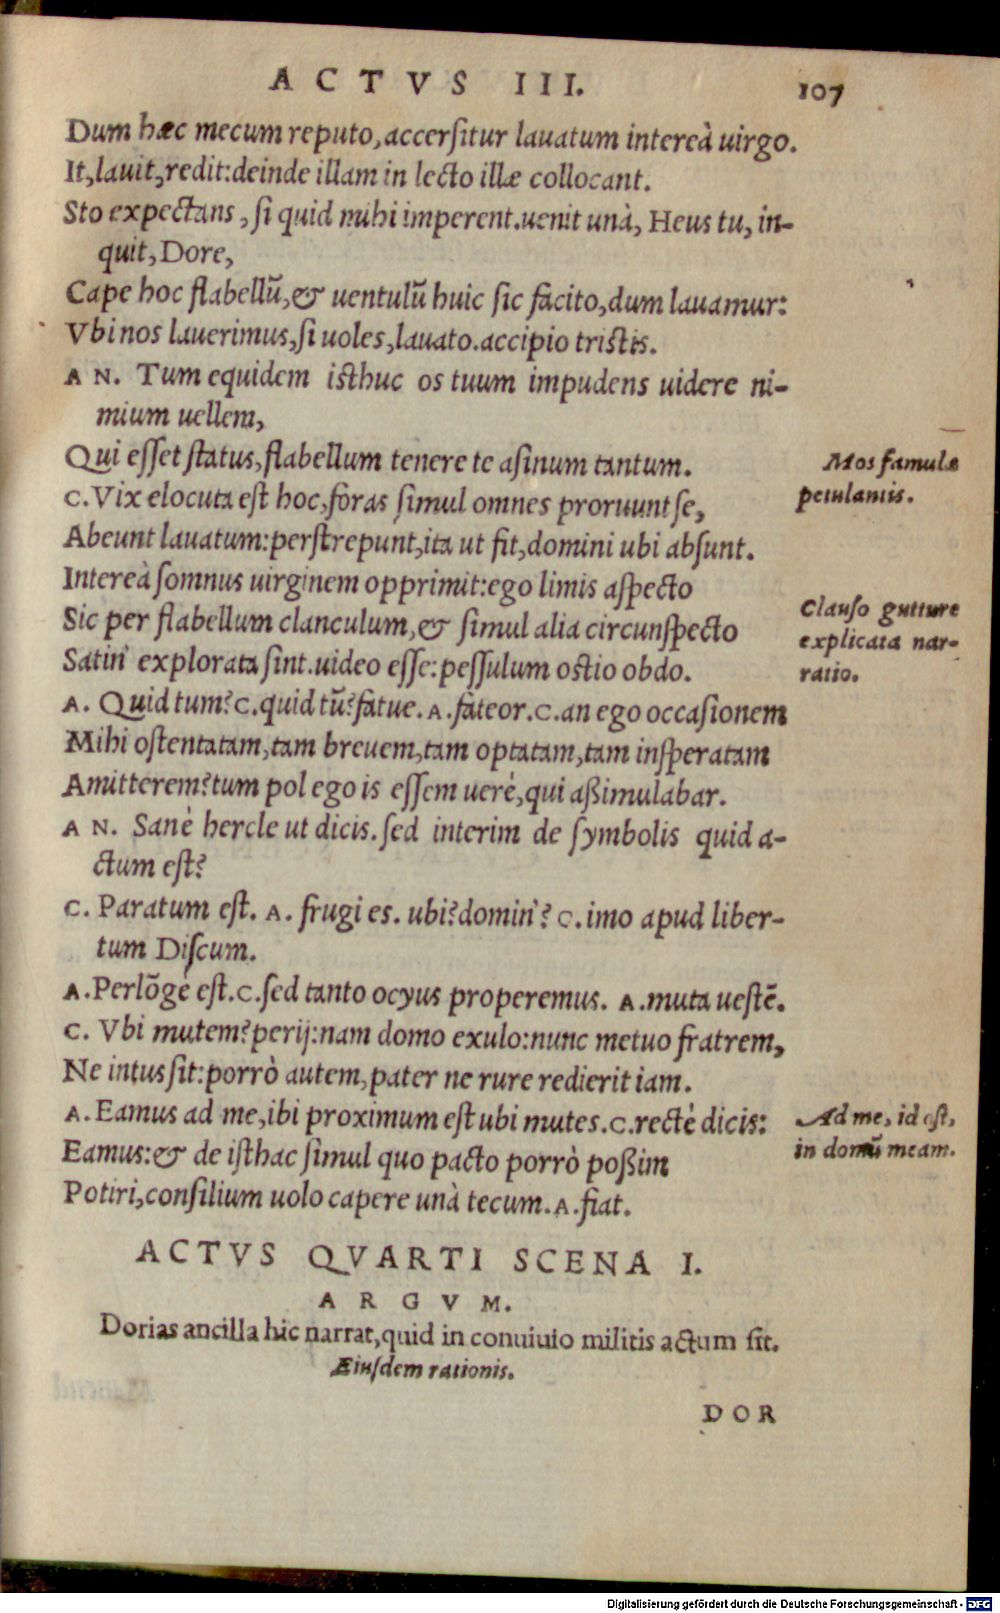 ACTVS III. 107
Dum hæc mecum reputo, accersitur lauatum intereà uirgo.
It, lauit, redit: deinde illam in lecto illæ collocant.
Sto expectans, si quid mihi imperent. uenit unà, Heus tu, in-
quit, Dore,
Cape hoc flabellũ, & uentulũ huic sic facito, dum lauamur:
Vbi nos lauerimus, si uoles, lauato. accipio tristis.
AN. Tum equidem isthuc os tuum impudens uidere ni-
mium uellem,
Qui esset status, flabellum tenere te asinum tantum.
C. Vix elocuta est hoc, foras simul omnes proruunt se,
Abeunt lauatum: perstrepunt, ita ut fit, domini ubi absunt.
Intereà somnus uirginem opprimit: ego limis aspecto
Sic per flabellum clanculum, & simul alia circunspecto
Satin' explorata sint. uideo esse: pessulum ostio obdo.
A. Quid tum? C. quid tũ? fatue. A. fateor. C. an ego occasionem
Mihi ostentatam, tam breuem, tam optatam, tam insperatam
Amitterem? tum pol ego is essem uerè, qui aßimulabar.
AN. Sanè hercle ut dicis. sed interim de symbolis quid a-
ctum est?
C. Paratum est. A. frugi es. ubi? domin'? C. imo apud liber-
tum Discum.
A. Perlõgè est. C. sed tanto ocyus properemus. A. muta uestẽ.
C. Vbi mutem? perij: nam domo exulo: nunc metuo fratrem,
Ne intus sit: porrò autem, pater ne rure redierit iam.
A. Eamus ad me, ibi proximum est ubi mutes. C. rectè dicis:
Eamus: & de isthac simul quo pacto porrò poßim
Potiri, consilium uolo capere unà tecum. A. fiat.
Mos famulæ
petulantis.
Clauso gutture
explicata nar-
ratio.
Ad me, id est,
in domũ meam.
ACTVS QVARTI SCENA I.
ARGVM.
Dorias ancilla hic narrat, quid in conuiuio militis actum sit.
Eiusdem rationis.
DOR
Digitalisierung gefördert durch die Deutsche Forschungsgemeinschaft - DFG